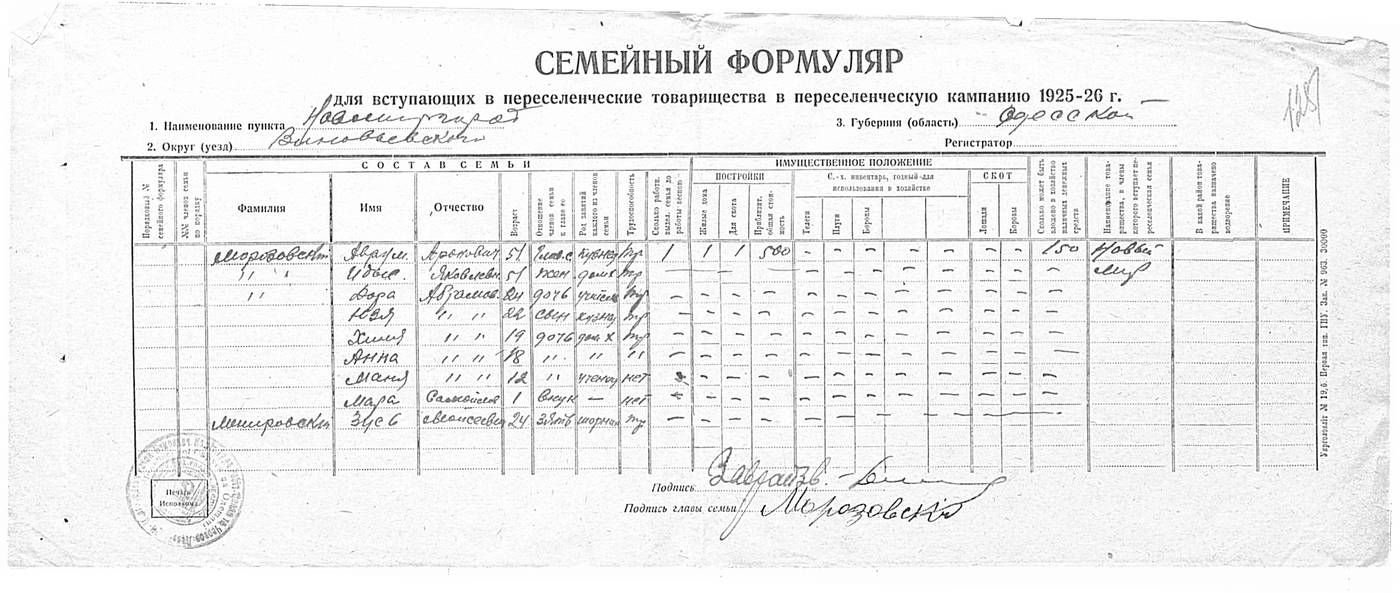 128
СЕМЕЙНЫЙ ФОРМУЛЯР
для вступающих в переселенческие товарищества в переселенческую кампанию 1925-26 г.
1. Наименование пункта Новомиргород
3. Губерния (область) Одесской
2. Округ (уезд) Зиновьевского
Регистратор
СОСТАВ СЕМЬИ ИМУЩЕСТВЕННОЕ ПОЛОЖЕНИЕ
ПОСТРОЙКИ С.-х. инвентарь, годный для использования в хозяйстве СКОТ
Порядковый № семейного формуляра
№№ членов семьи по порядку
Фамилия
Имя
Отчество
Возраст
Отношение членов семьи к главе ее
Род занятий каждого из членов семьи
Трудоспособность
Сколько работн. выдел. семья до работы весною
Жилые дома
Для скота
Приблизит. общая стоимость
Телеги
Плуги
Бороны
Лошади
Коровы
Сколько может быть вложено в хозяйство наличных денежных средств
Наименование товарищества, в члены которого вступает переселенческая семья
В какой район товарищества назначено водворение
ПРИМЕЧАНИЕ
Морозовский Аврум. Аронович 51 глав. с кузнец тр 1 1 1 500 - 150 Новый
" " Яковлевн. 51 жен дом х тр - - - - - - - - - - Мир
" Дора Абрамов. 24 дочь учител тр - - - - - - - - - - -
Юзя " " 22 сын кузнец тр - - - - - - - - - - -
" " 19 дочь дом х тр - - - - - - - - - - -
Анна " " 18 " " " - - - - - - - - - - -
Маня " " 12 " учениц нет - - - - - - - - - -
Мара 1 внук — нет - - - - - - - - - -
Зусь Моисеевич 24 зять шорник тр - - - - - - - - -
Печать Исполкома
Подпись
Подпись главы семьи Морозовский
Укрголовліт № 1926 Первая тип. ГПУ. Зак. № 963. 30000